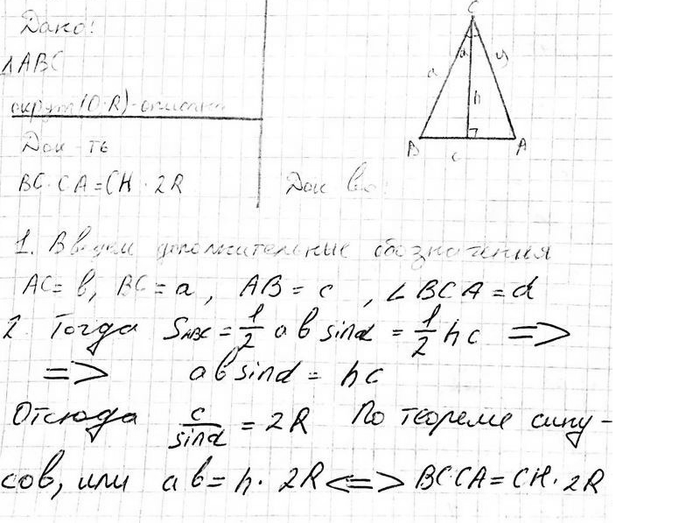 Дано:
C
ΔABC
a
α
h
окруж(O;R)-описана
B
c
A
Док-ть
BC·CA=CH·2R
Док-во:
1. Введем дополнительные обозначения
AC=b, BC=a, AB=c, ∠BCA=α
2. Тогда S_ABC = 1/2 ab sinα = 1/2 hc =>
=> ab sinα = hc
Отсюда c/sinα = 2R По теореме сину-
сов, или ab=h·2R <=> BC·CA=CH·2R